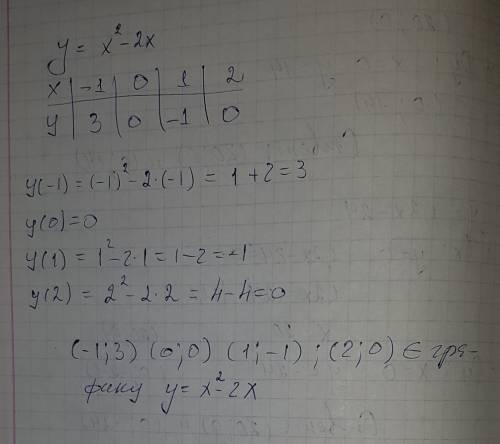 y = x² - 2x
x | -1 | 0 | 1 | 2
y | 3 | 0 | -1 | 0
y(-1) = (-1)² - 2·(-1) = 1 + 2 = 3
y(0) = 0
y(1) = 1² - 2·1 = 1 - 2 = -1
y(2) = 2² - 2·2 = 4 - 4 = 0
(-1; 3) (0; 0) (1; -1) ; (2; 0) ∈ гра-
фику y = x² - 2x